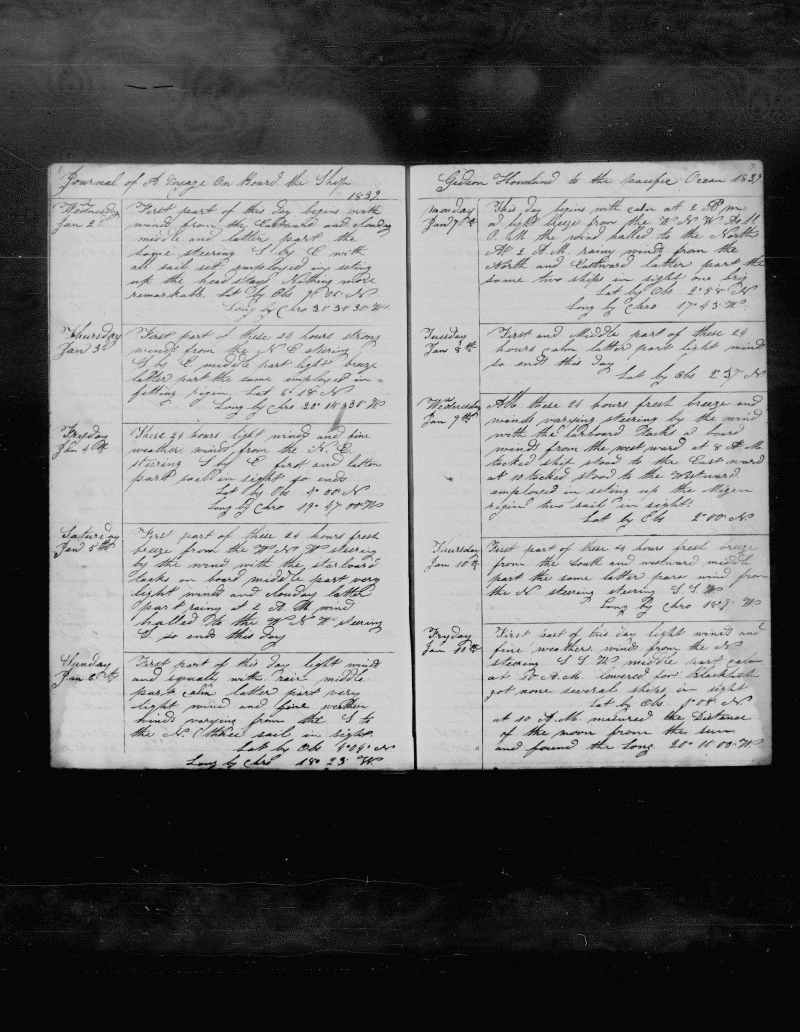 Journal of A Voyage On Board the Ship
1839
Wednesday
Jan 2d
First part of this day begins with
winds from the Eastward and Clouday
middle and latter part the
same steering S by E with
all sail set employed in seting
up the head stays Nothing more
remarkable. Lat by Obs 9° 06' N
Long by Chro 21° 31' 30" W
Thursday
Jan 3d
First part of these 24 hours strong
winds from the N E steering
S by E middle part light breeze
latter part the same employed in
fitting rigin Lat 6° 18' N
Long by Chro 20° 18' 30" W
Fryday
Jan 4th
These 24 hours light winds and fine
weather winds from the N. E.
steering S by E first and latter
part sail in sight so ends
Lat by Obs 4° 00' N
Long by Chro 19° 47' 00" W
Saturday
Jan 5th
First part of these 24 hours fresh
breeze from the W N W steering
by the wind with the starboard
tacks on board middle part very
light wind and clouday latter
part rainy at 2 A M wind
halled to the W N W steering
S so ends this day
Sunday
Jan 6th
First part of this day light wind
and squally with rain middle
part calm latter part very
light wind and fine weather
winds varying from the S to
the N. E three sail in sight.
Lat by Obs 4° 04' N
Long by Chro 18° 23' W
Gideon Howland to the pacific Ocean 1839
monday
Jan 7th
This day begins with calm at 2 P m
a light breeze from the W N W At 11
P. M. the wind halled to the North
At 2 A. M. rainy winds from the
North and Eastward latter part the
same two ships in sight one brig
Lat by Obs 2° 58' N
Long by Chro 17° 43' W
Tuesday
Jan 8th
First and Middle part of these 24
hours calm latter part light wind
so ends this day
Lat by Obs 2° 37' N
Wednesday
Jan 9th
All these 24 hours fresh breeze and
winds varying steering by the wind
with the larboard tacks a board
winds from the west ward at 8 A. M
tacked ship stood to the East ward
at 10 tacked stood to the Westward.
employed in seting up the Mizen
rigin two sail in sight.
Lat by Obs 2° 00' N
Thursday
Jan 10th
First part of these 24 hours fresh breeze
from the South and westward middle
part the same latter part wind from
the N steering steering S S W
Long by Chro W
Fryday
Jan
First part of this day light wind and
fine weather wind from the N
steering S S W middle part calm
at A. M. lowered for blackfish
got none several ships in sight
Lat by Obs 1° 08' N
at 10 A. M. measured the Distance
of the moon from the sun
and found the Long. 20° 11' 00" W